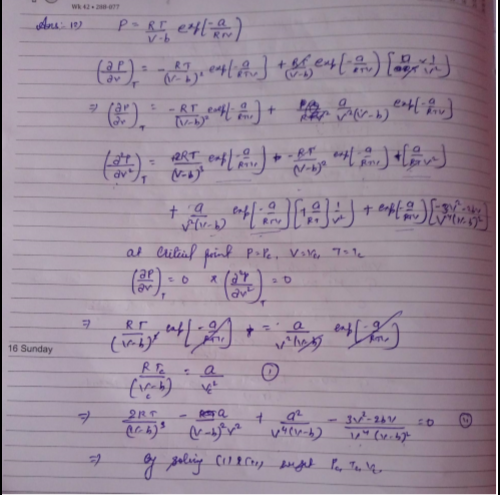 Wk 42 • 289-077
Ans:- P = RT/V-b exp[-a/RTV]
(∂P/∂V)_T = -RT/(V-b)² exp[-a/RTV] + RT/(V-b) exp[-a/RTV] [ × 1/V²]
⇒ (∂P/∂V)_T = -RT/(V-b)² exp[-a/RTV] + a/V²(V-b) exp[-a/RTV]
(∂²P/∂V²)_T = 2RT/(V-b)³ exp[-a/RTV] + -RT/(V-b)² exp[-a/RTV] [a/RTV²]
+ a/V²(V-b) exp[-a/RTV] [+a/RT] 1/V² + exp[-a/RTV] [-3V²-2bV/V⁴(V-b)²]
at critical point P=Pc, V=Vc, T=Tc
(∂P/∂V)_T = 0 × (∂²P/∂V²)_T = 0
⇒ RT/(V-b)² exp[-a/RTV] = a/V²(V-b) exp[-a/RTV]
16 Sunday
RTc/(Vc-b) = a/Vc² ①
⇒ 2RT/(V-b)³ - a/(V-b)²V² + a²/V⁴(V-b) - 3V²-2bV/V⁴(V-b)² = 0 ②
⇒ By solving we get Pc, Tc, Vc